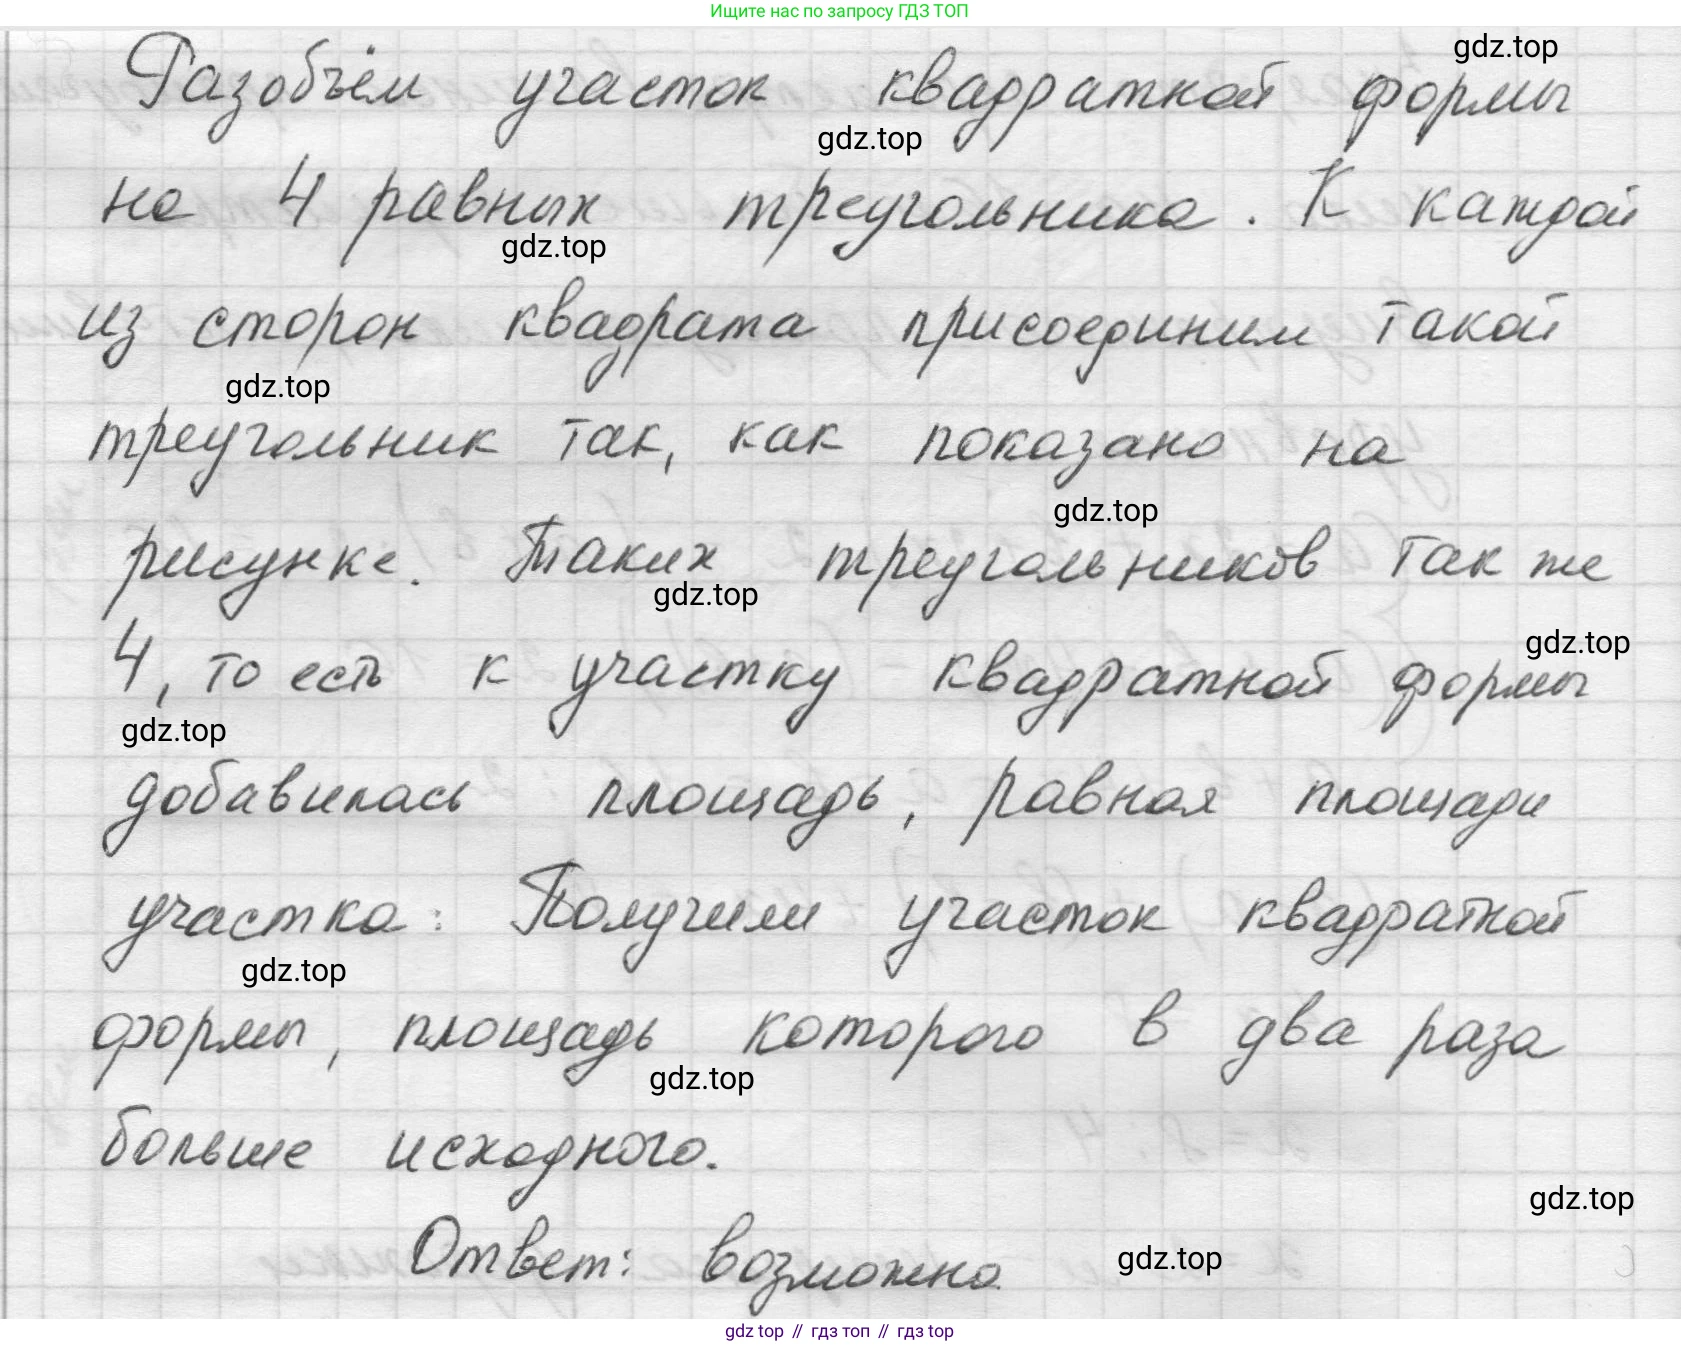 Ищите нас по запросу ГДЗ ТОП
gdz.top
Разобъём участок квадратной формы
gdz.top
на 4 равных треугольника. К каждой
gdz.top
из сторон квадрата присоединим такой
gdz.top
треугольник так, как показано на
gdz.top
рисунке. Таких треугольников так же
gdz.top
gdz.top
4, то есть к участку квадратной формы
gdz.top
добавилась площадь, равная площади
участка. Получили участок квадратной
gdz.top
формы, площадь которого в два раза
gdz.top
больше исходного.
gdz.top
Ответ: возможно
gdz.top
gdz top // гдз топ // гдз top